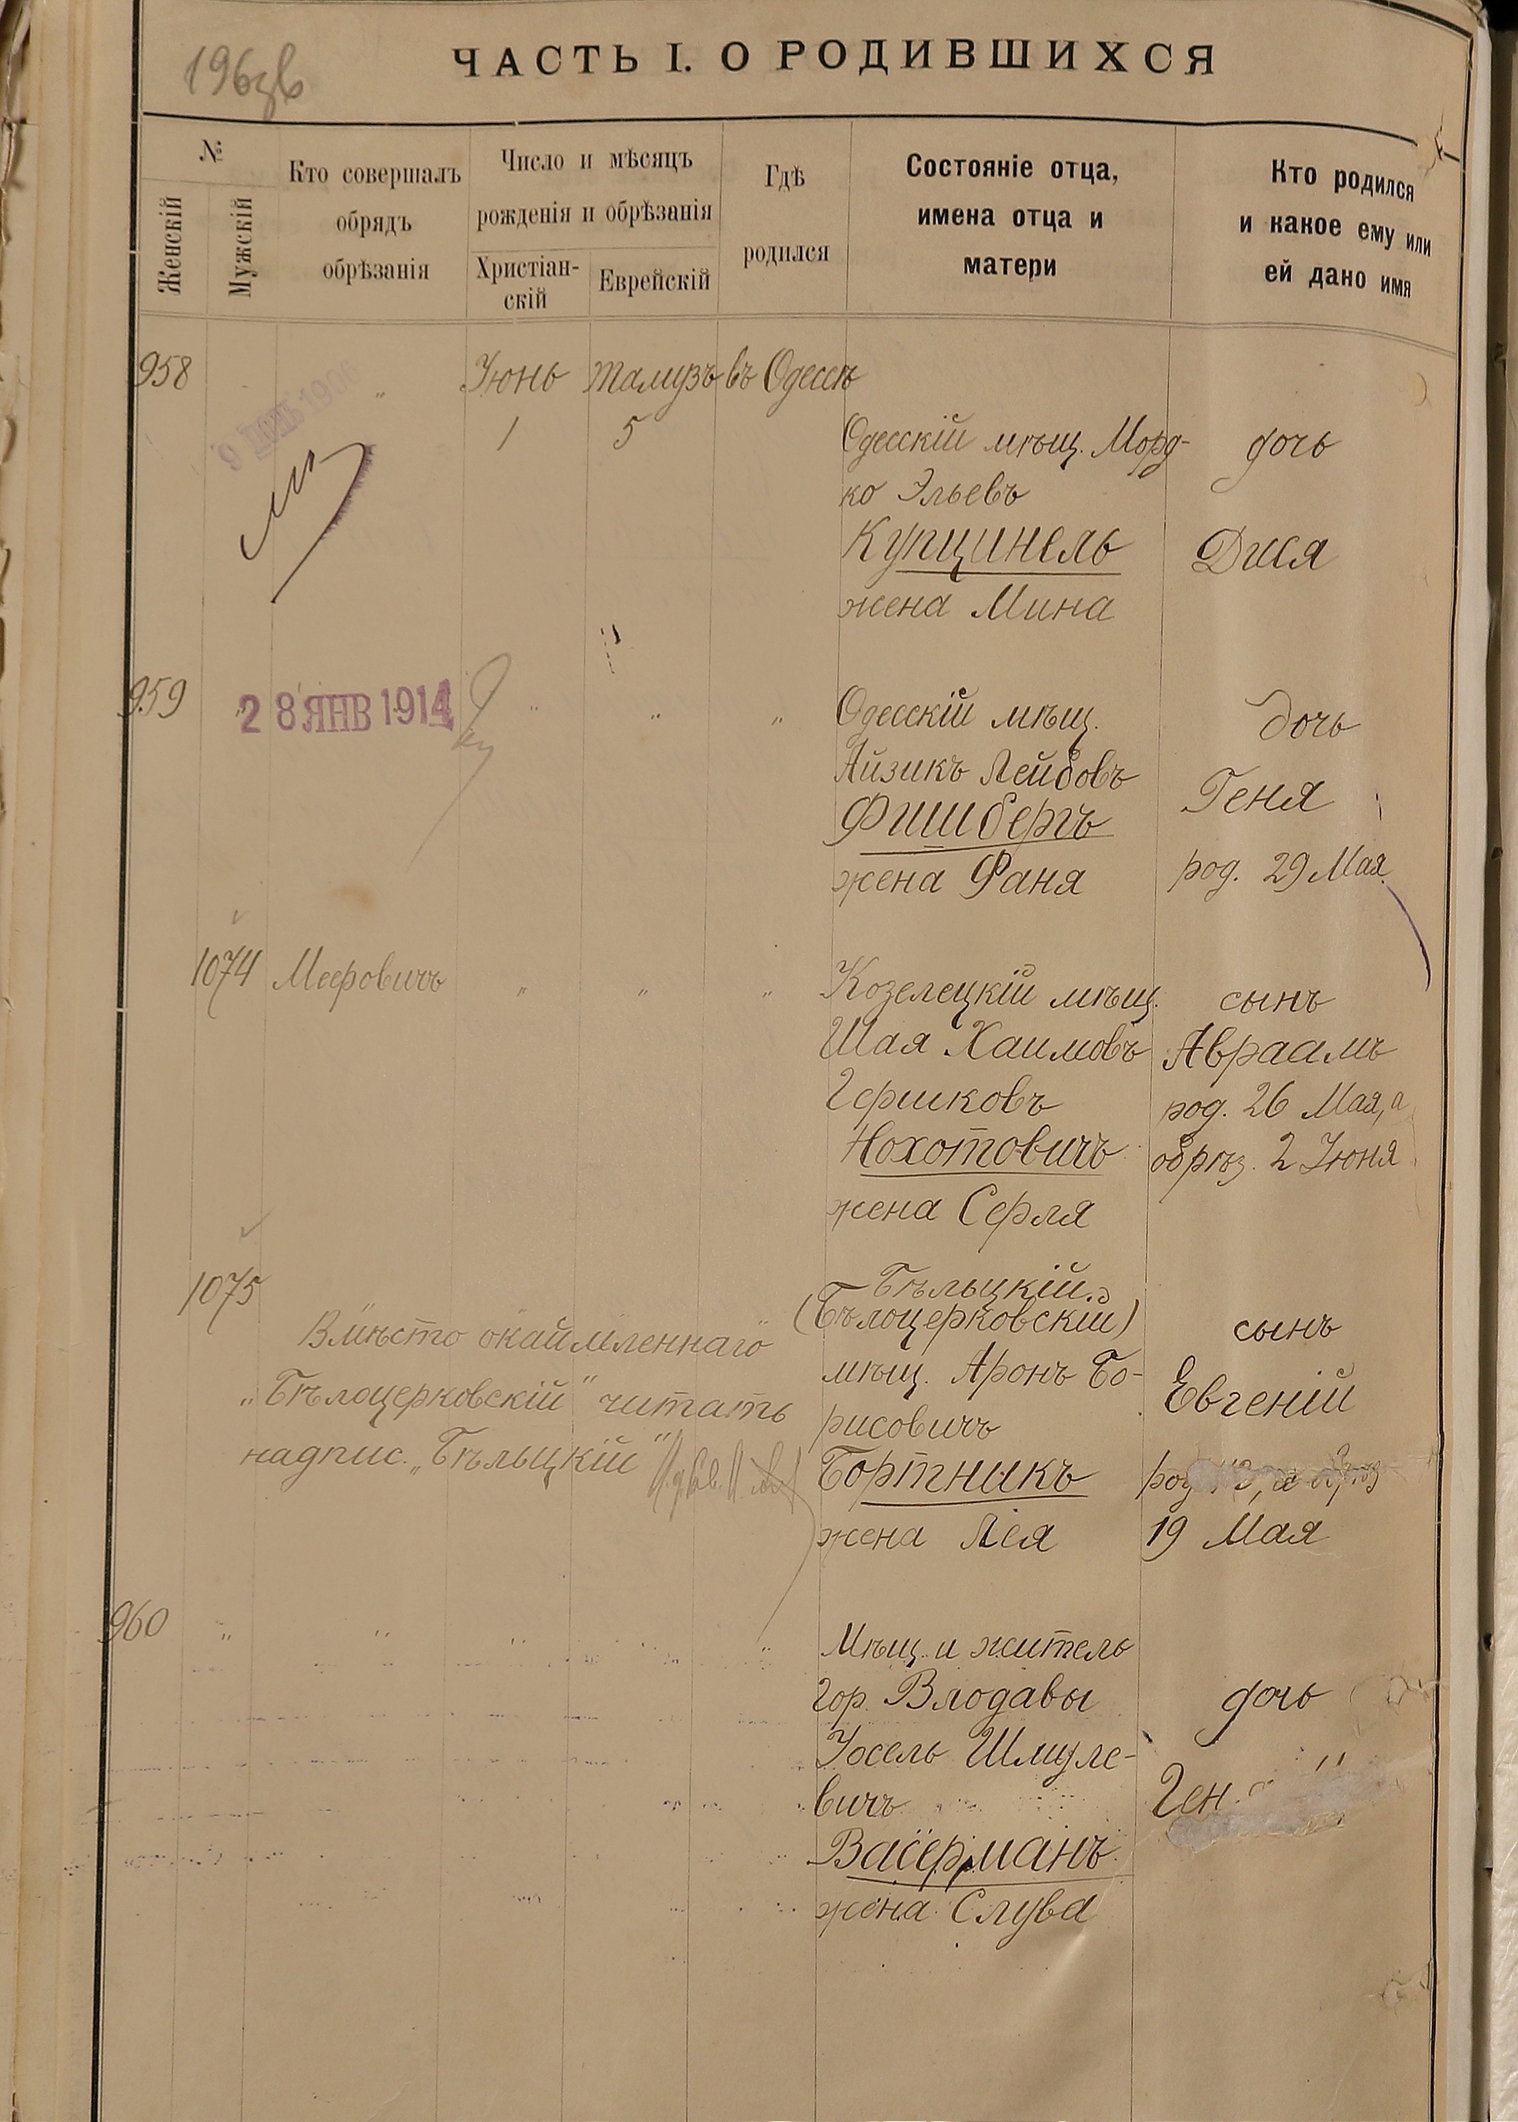 196 зв
ЧАСТЬ I. О РОДИВШИХСЯ
№
Женскій
Мужскій
Кто совершалъ
обрядъ
обрѣзанія
Число и мѣсяцъ
рожденія и обрѣзанія
Христіан-
скій
Еврейскій
Гдѣ
родился
Состояніе отца,
имена отца и
матери
Кто родился
и какое ему или
ей дано имя
958 „ Іюнь Тамузъ въ Одессѣ
1 5
Одесскій мѣщ. Морд-
ко Эльевъ
Купцинель
жена Мина
дочь
Дися
959 „ „ „ „
28 ЯНВ 1914
Одесскій мѣщ.
Айзикъ Лейбовъ
Фишбергъ
жена Фаня
дочь
Геня
род. 29 Мая
1074 Мееровичъ „ „ „
Козелецкій мѣщ.
Шая Хаимовъ
Гершковъ
Нохотовичъ
жена Серля
сынъ
Авраамъ
род. 26 Мая, а
обрѣз. 2 Іюня
1075
Вмѣсто окаймленнаго
„Бѣлоцерковскій“ читать
надпис. „Бѣльцкій“
Бѣльцкій
(Бѣлоцерковскій)
мѣщ. Аронъ Бо-
рисовичъ
Бортникъ
жена Лея
сынъ
Евгеній
19 Мая
960 „ „ „ „ „
Мѣщ. и житель
гор. Влодавы
Іосель Шмуле-
вичъ
Васерманъ
жена Слува
дочь